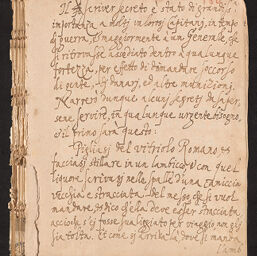 Il scriver secreto è stato di grandiss.
importanza a molti in loro, Capitani, in tempo
di guerra, et maggiormente a un Generale, che
si ritrovasse assediato dentro à qualunque
fortezza, per effetto di dimandare soccorso
di gente, danari, ed altre munitioni.
Narrerò dunque alcuni secreti da saper-
sene servire, in qualunque urgente bisogno,
ed il primo sarà questo:
Piglisi del Vitriolo Romano, et
facciasi stillare in un lambico, et con quel
liquore scrivasi nelle spalle d'una camiccia
vecchia e stracciata del messo che si vuol
mandare, et dico ch'ella deve esser stracciata,
acciochè s'ei fosse svaliggiato per viaggio non gli
sia tolta. Et come ei arriva là dove si manda